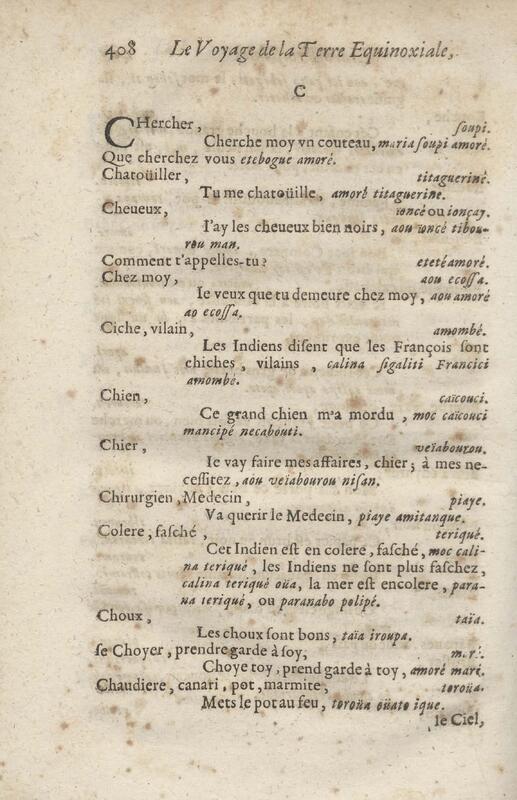 408 Le Voyage de la Terre Equinoxiale,
C
CHercher, soupi.
Cherche moy vn couteau, maria soupi amoré.
Que cherchez vous etebogue amoré.
Chatoüiller, titagueriné.
Tu me chatoüille, amoré titaguerine.
Cheueux, ïoncé ou ionçay.
I'ay les cheueux bien noirs, aou ïoncé tibou-
rou man.
Comment t'appelles-tu? etetéamoré.
Chez moy, aou ecossa.
Ie veux que tu demeure chez moy, aou amoré
ao ecossa.
Ciche, vilain, amombé.
Les Indiens disent que les François sont
chiches, vilains, calina sigaliti Francici
amombé.
Chien, caïcouci.
Ce grand chien m'a mordu, moc caïcouci
mancipé necabouti.
Chier, veïabourou.
Ie vay faire mes affaires, chier; à mes ne-
cessitez, aou veïabourou nisan.
Chirurgien, Medecin, piaye.
Va querir le Medecin, piaye amitanque.
Colere, fasché, teriqué.
Cet Indien est en colere, fasché, moc cali-
na teriqué, les Indiens ne sont plus faschez,
calina teriqué oüa, la mer est encolere, para-
na teriqué, ou paranabo polipé.
Choux, taïa.
Les choux sont bons, taïa iroupa.
se Choyer, prendre garde à soy,
Choye toy, prend garde à toy, amoré mari.
Chaudiere, canari, pot, marmite, toroüa.
Mets le pot au feu, toroüa oüato ique.
le Ciel,